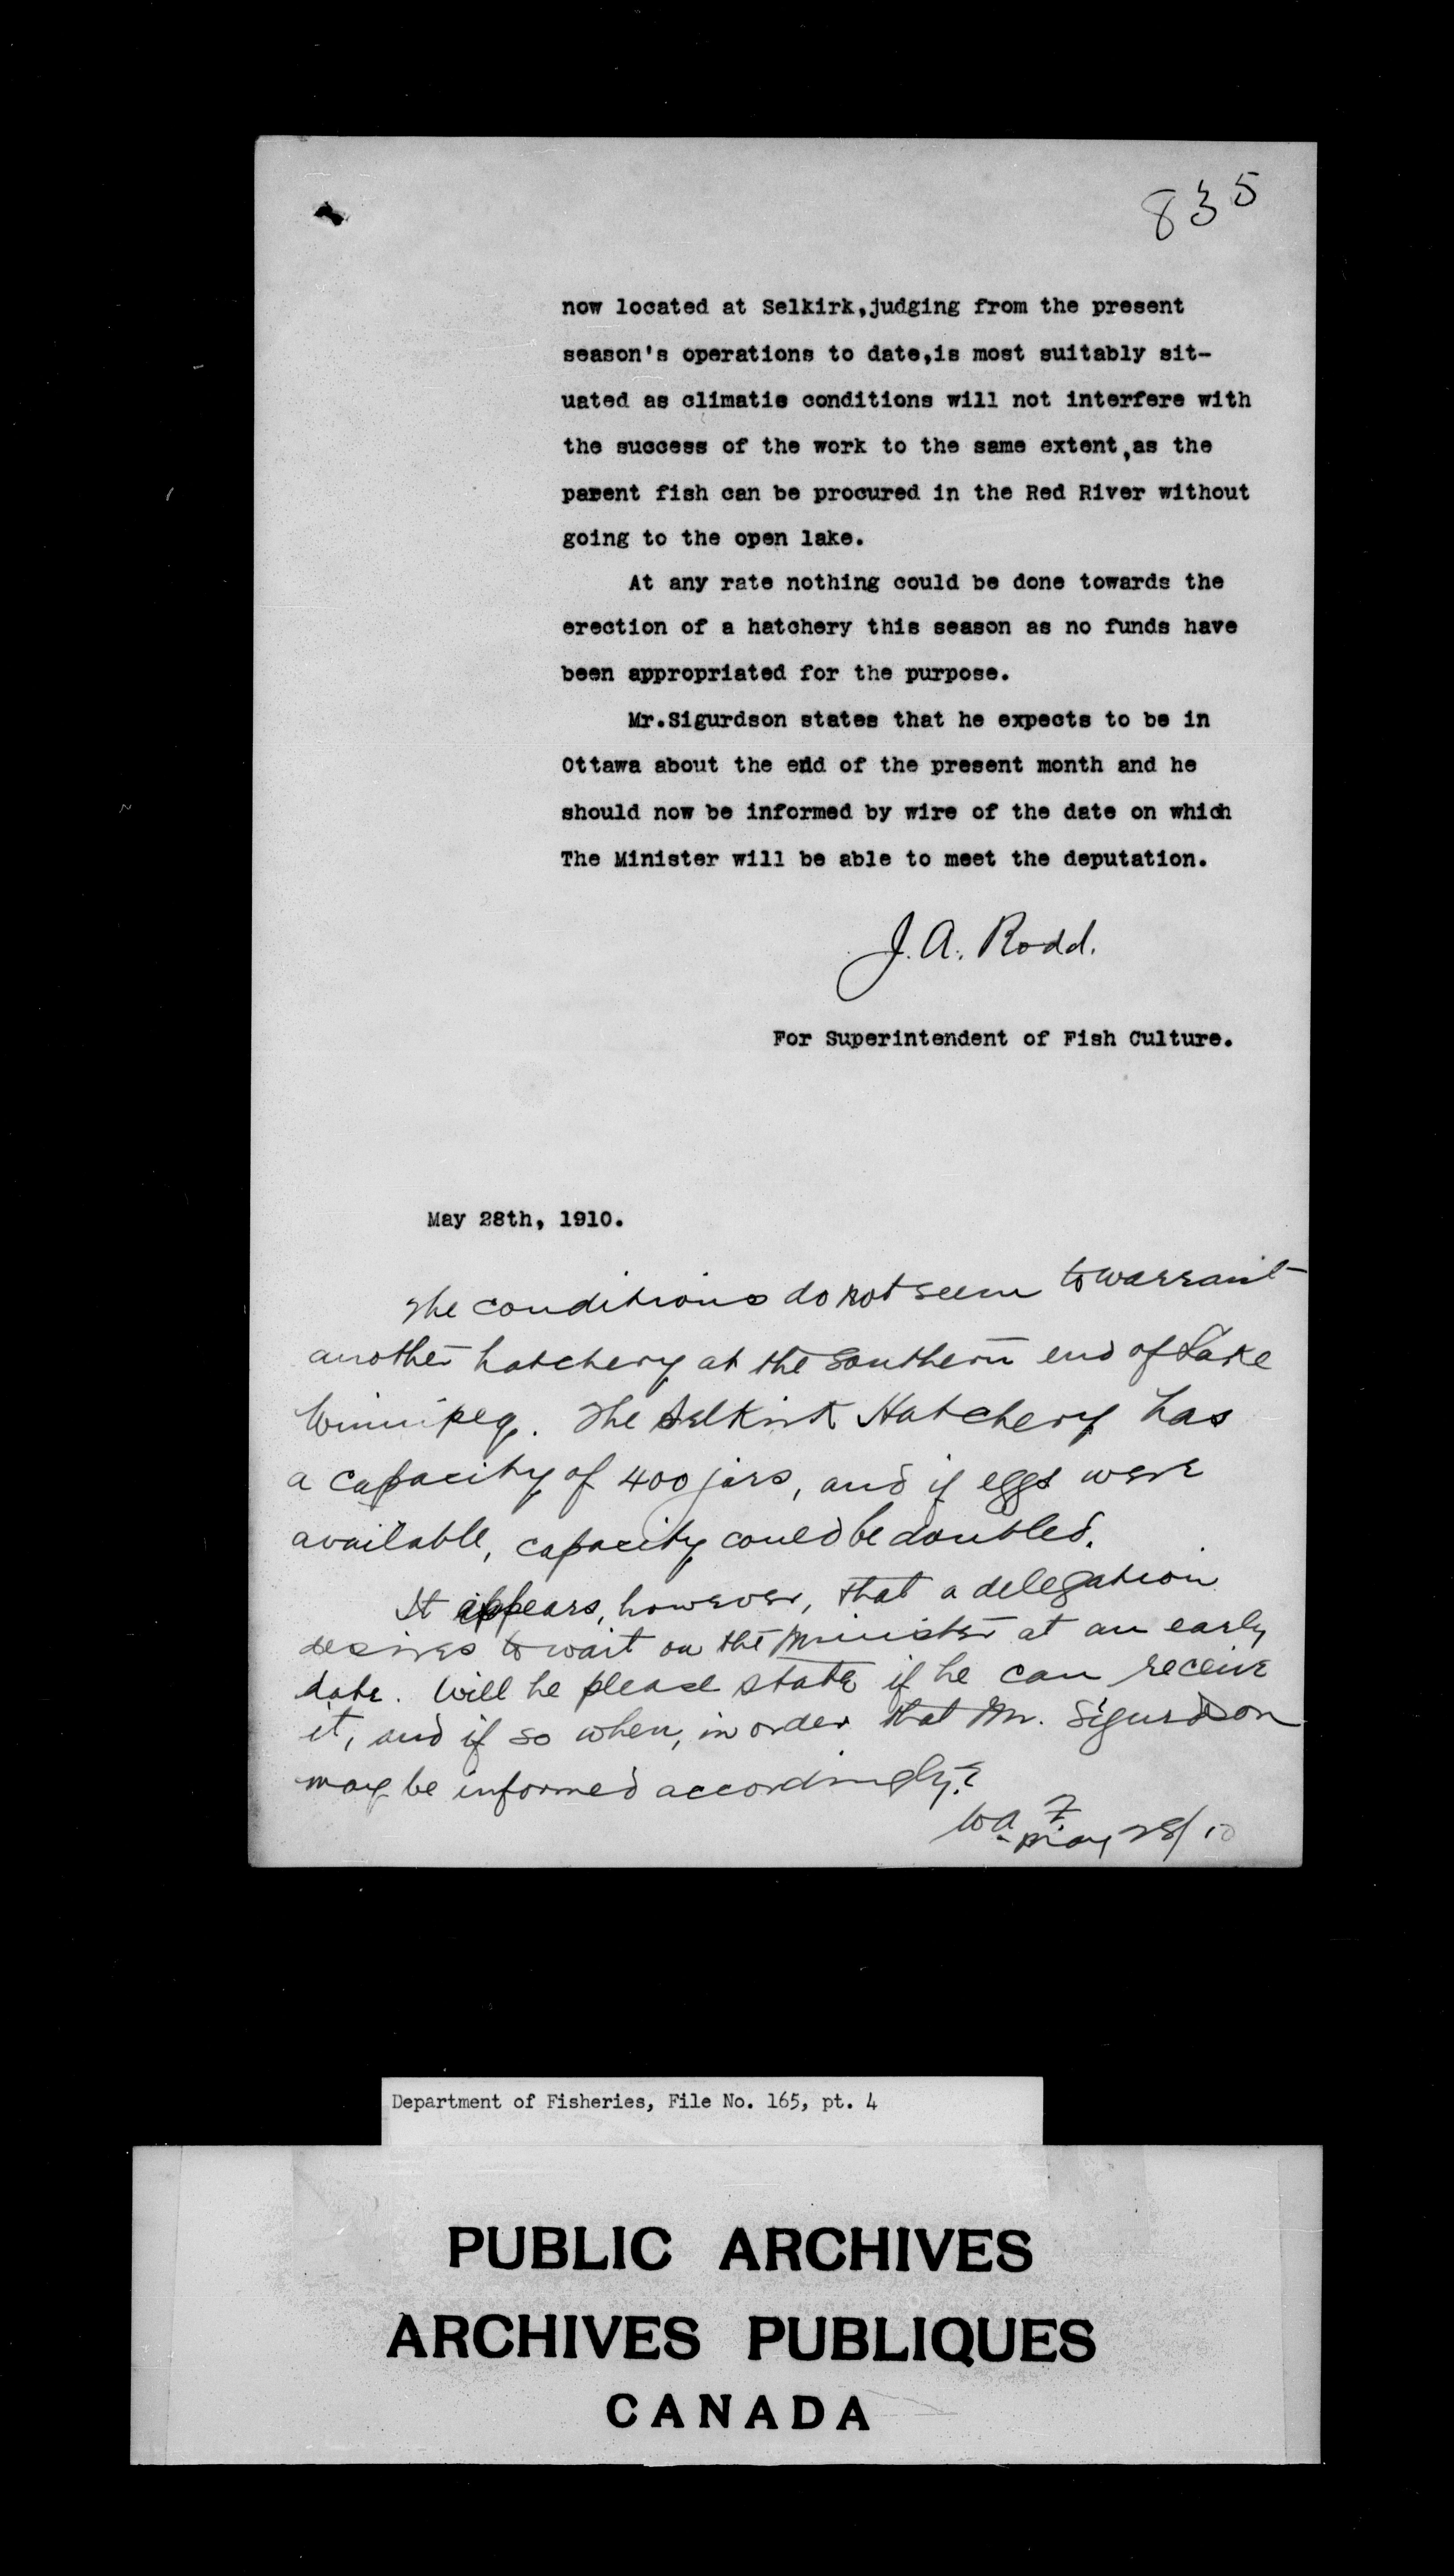 835
now located at Selkirk,judging from the present
season's operations to date,is most suitably sit-
uated as climatic conditions will not interfere with
the success of the work to the same extent,as the
parent fish can be procured in the Red River without
going to the open lake.
At any rate nothing could be done towards the
erection of a hatchery this season as no funds have
been appropriated for the purpose.
Mr.Sigurdson states that he expects to be in
Ottawa about the end of the present month and he
should now be informed by wire of the date on which
The Minister will be able to meet the deputation.
J. A. Rodd.
For Superintendent of Fish Culture.
May 28th, 1910.
The conditions do not seem to warrant
another hatchery at the southern end of Lake
Winnipeg. The Selkirk Hatchery has
a capacity of 400 jars, and if eggs were
available, capacity could be doubled.
It appears, however, that a delegation
desires to wait on the Minister at an early
date. Will he please state if he can receive
it, and if so when, in order that Mr. Sigurdson
may be informed accordingly?
W.A.F.
May 28/10
Department of Fisheries, File No. 165, pt. 4
PUBLIC ARCHIVES
ARCHIVES PUBLIQUES
CANADA